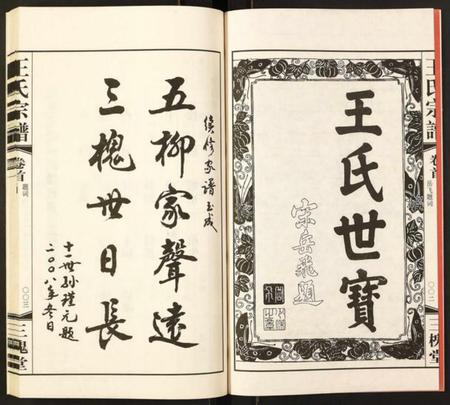 王氏宗譜
卷首
岳飛題詞
〇〇二
三槐堂
王氏世寶
宋岳飛題
續修家譜玉成
五柳家聲遠
三槐世日長
十一世孫瑾元題
二〇〇八年冬日
王氏宗譜
卷首
題詞
〇〇三
三槐堂